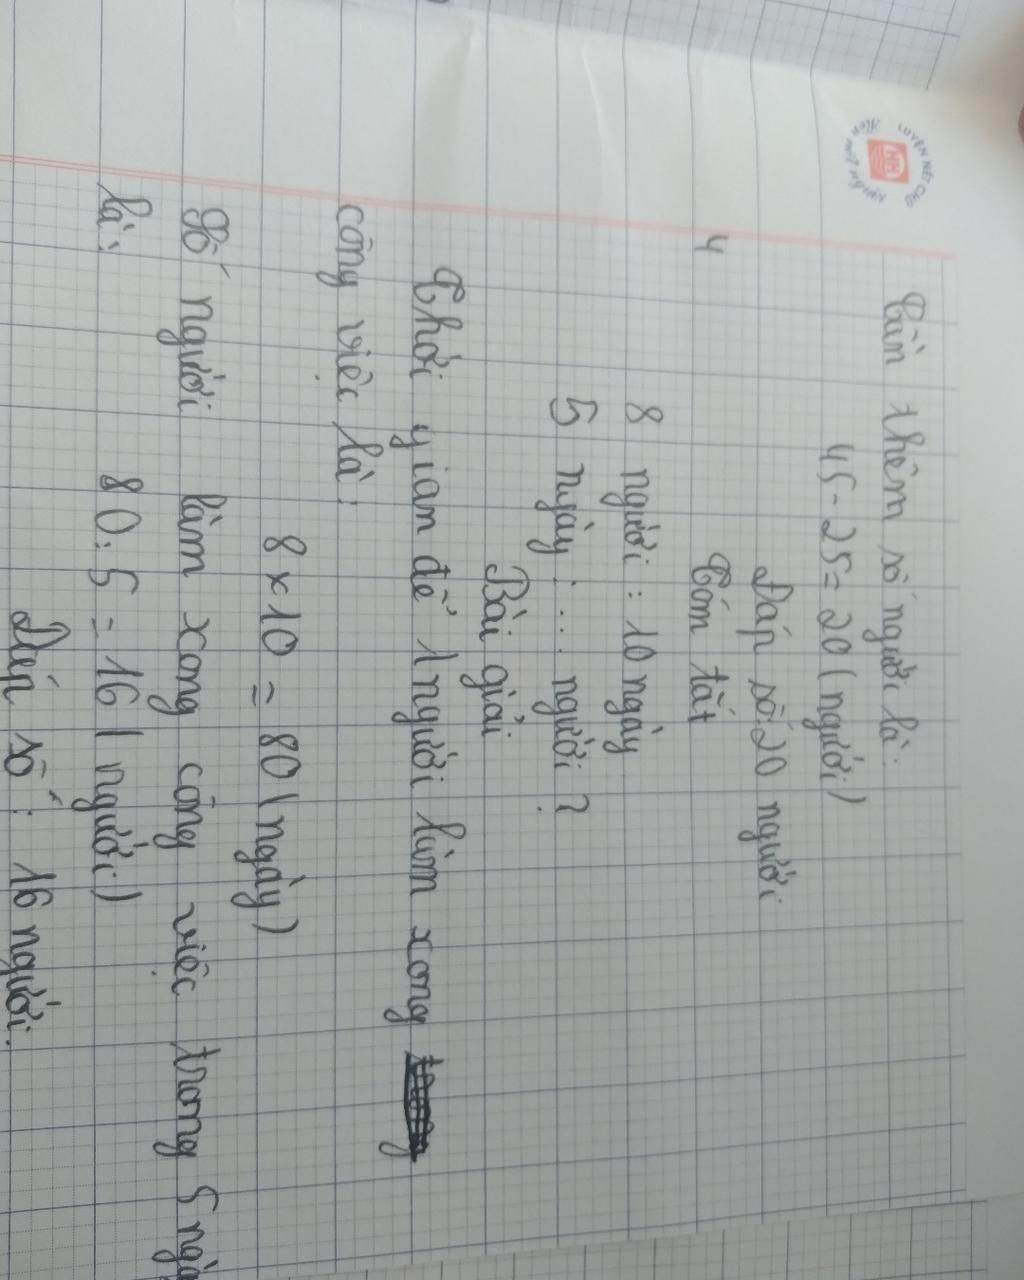 LUYỆN NÉT CHỮ
HH
RÈN NẾT NGƯỜI
Cần thêm số người là:
45 - 25 = 20 (người)
Đáp số: 20 người
4
Tóm tắt
8 người : 10 ngày
5 ngày : ... người ?
Bài giải
Thời gian để 1 người làm xong
công việc là:
8 x 10 = 80 (ngày)
Số người làm xong công việc trong 5 ngà
là:
80 : 5 = 16 (người)
Đáp số : 16 người.